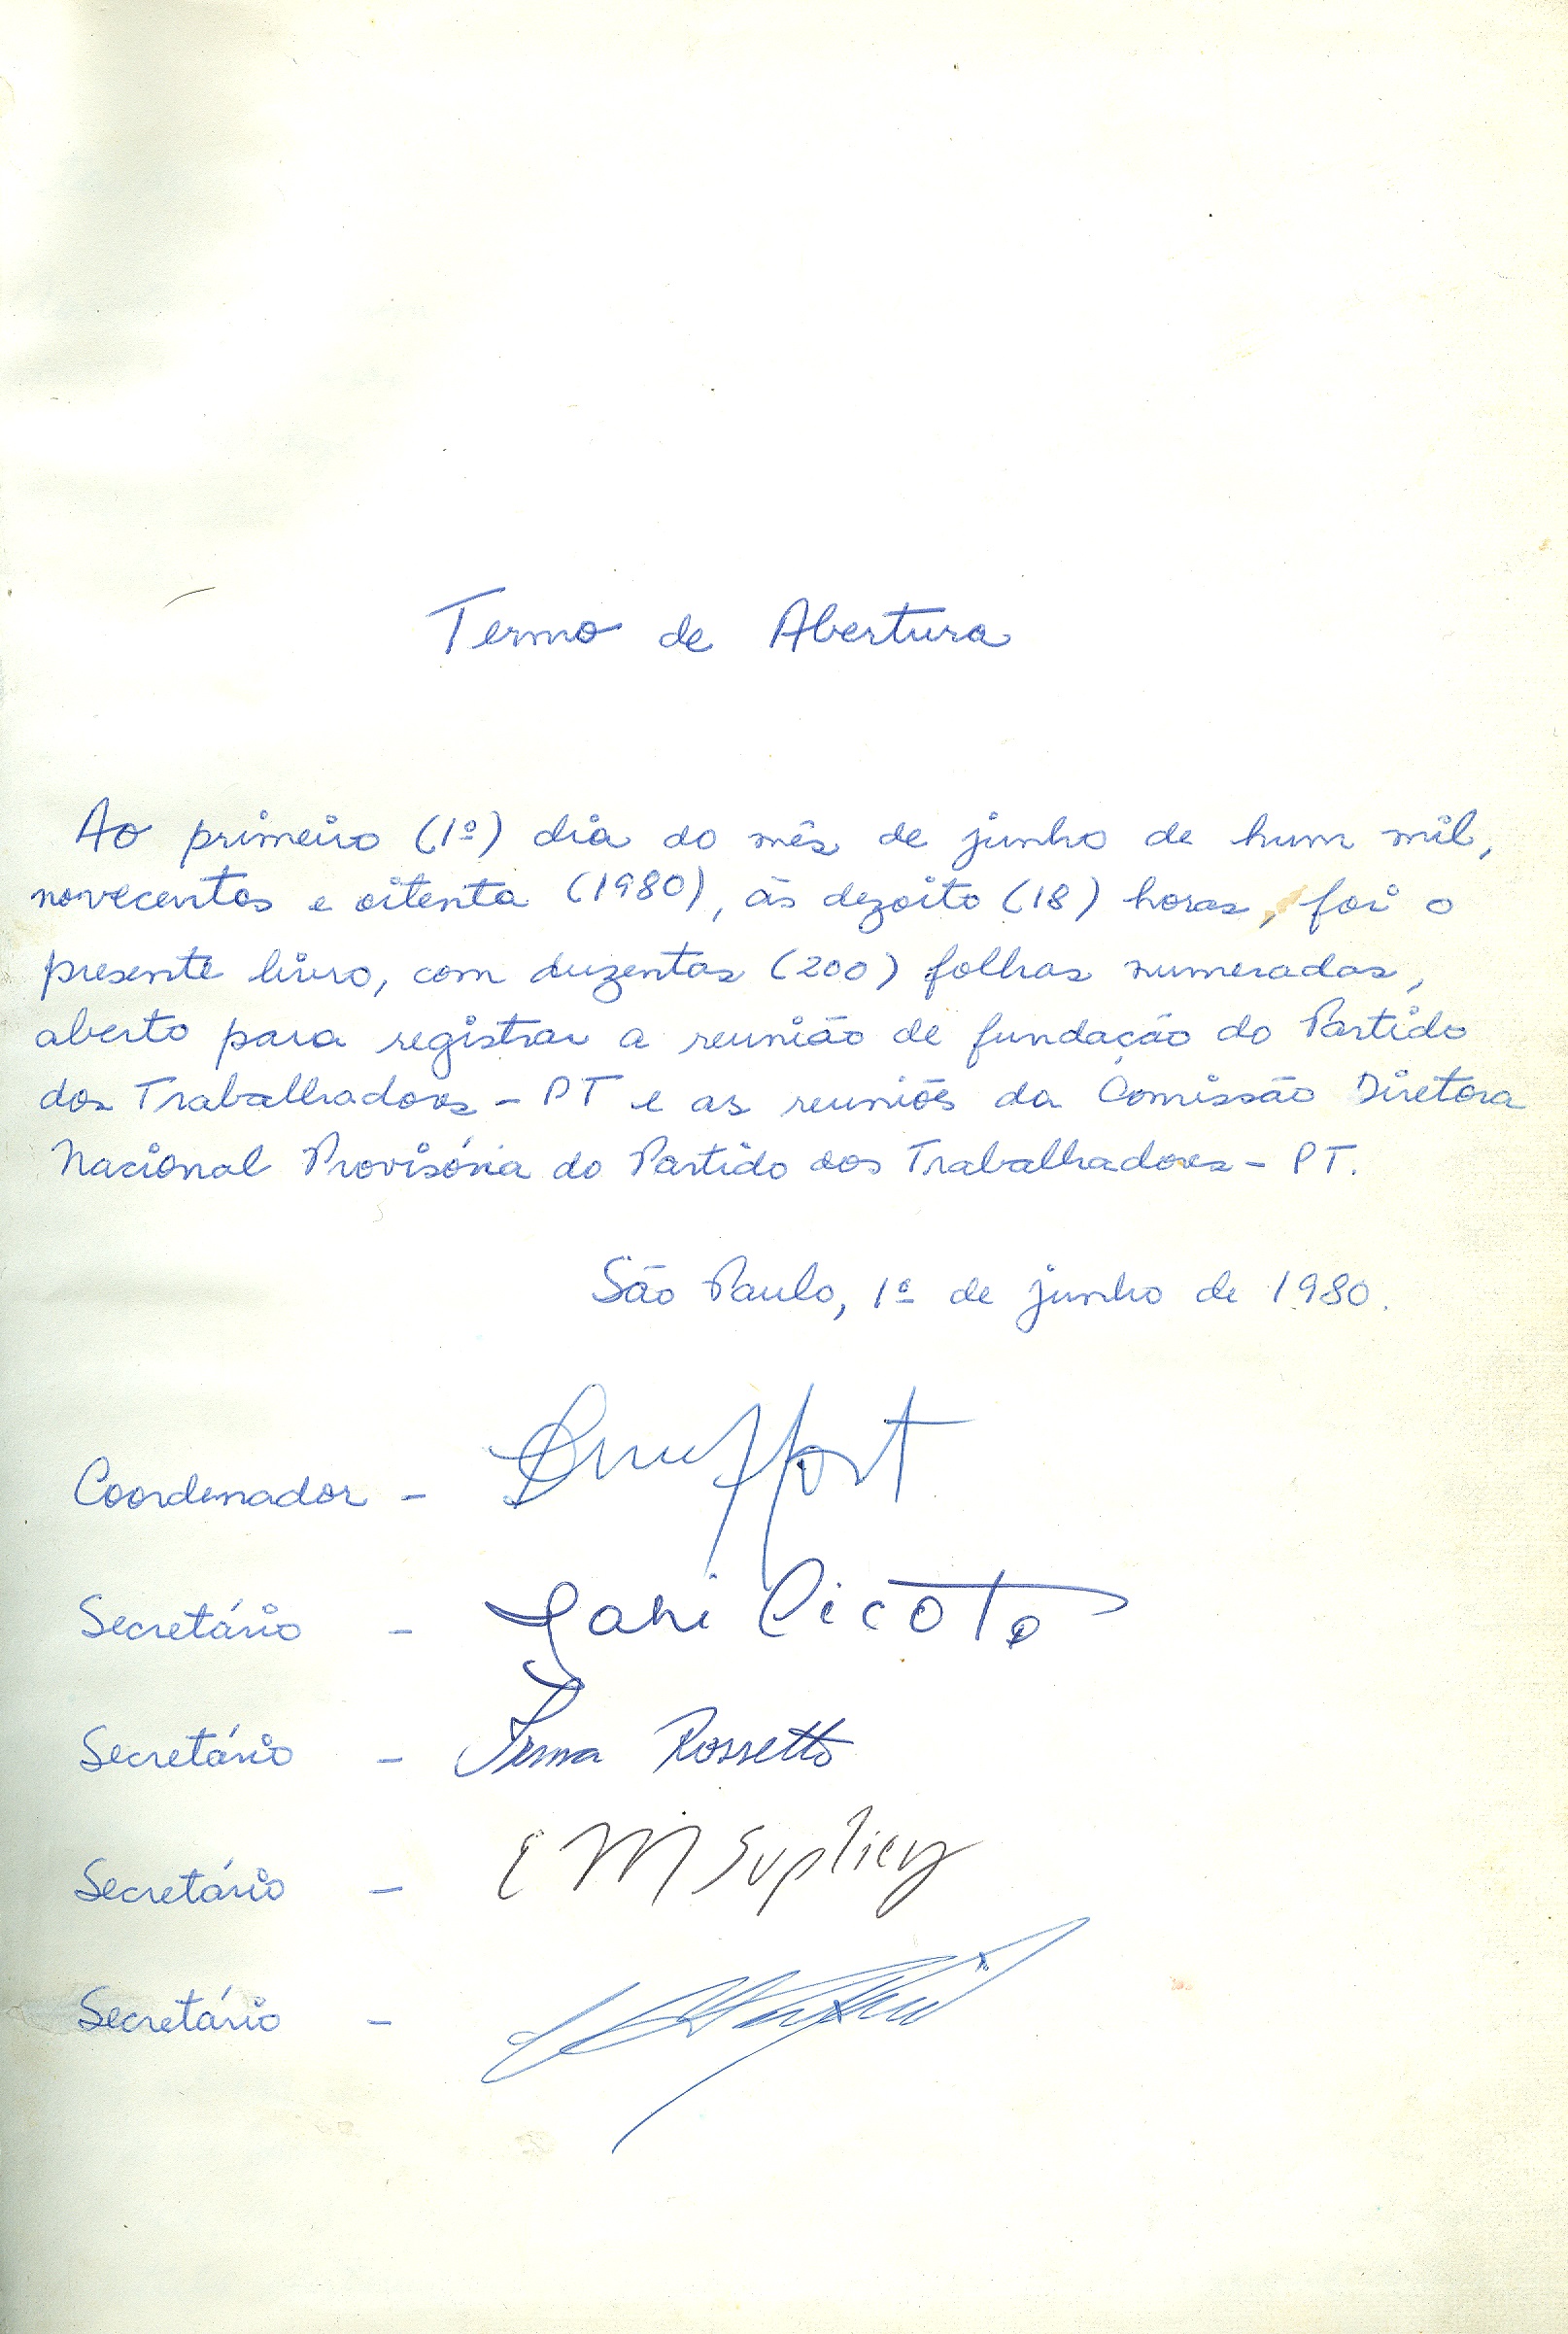 Termo de Abertura
Ao primeiro (1º) dia do mês de junho de hum mil,
novecentos e oitenta (1980), às dezoito (18) horas, foi o
presente livro, com duzentas (200) folhas numeradas,
aberto para registrar a reunião de fundação do Partido
dos Trabalhadores - PT e as reuniões da Comissão Diretora
Nacional Provisória do Partido dos Trabalhadores - PT.
São Paulo, 1º de junho de 1980.
Coordenador -
Secretário - Cicote
Secretário - Irma Rossetto
Secretário - E M Suplicy
Secretário -